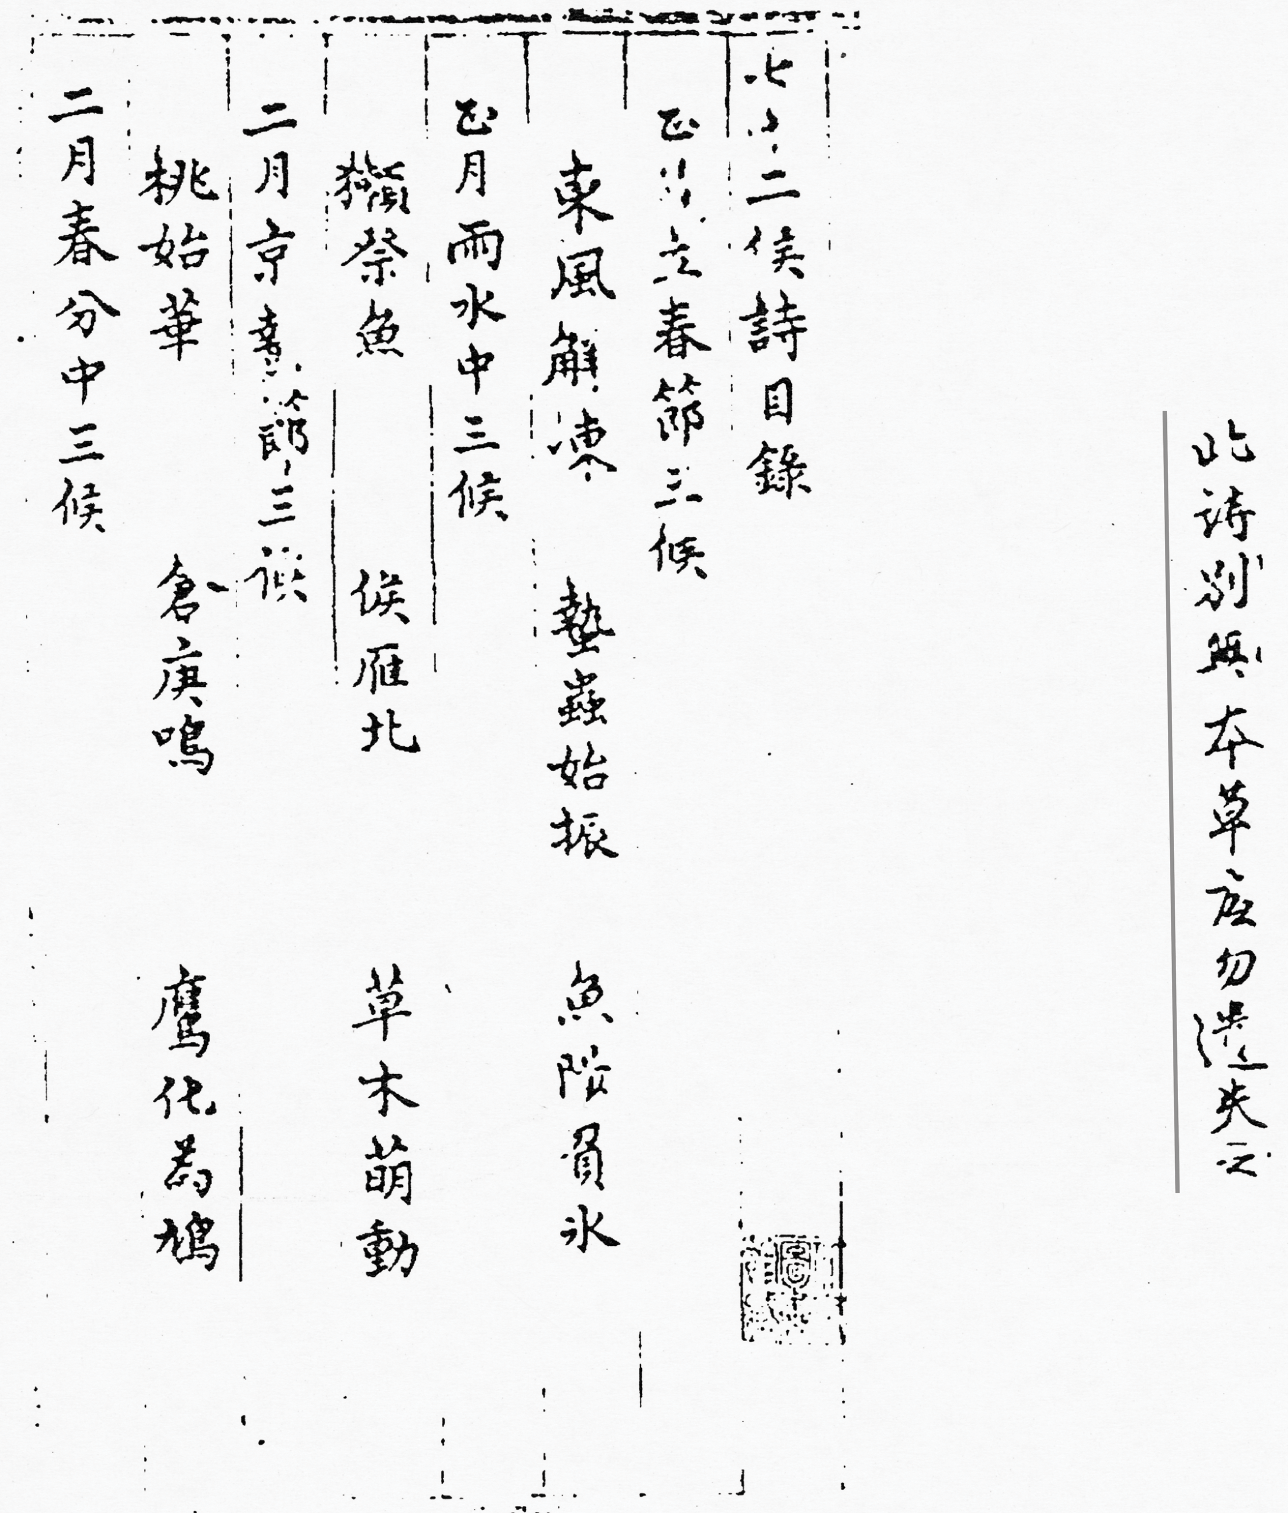 此詩別無本草底勿遺失云
七十二侯詩目錄
正月立春節三候
東風解凍 蟄蟲始振 魚陟負氷
正月雨水中三候
獺祭魚 候雁北 草木萌動
二月京蟄節三候
桃始華 倉庚鳴 鷹化為鳩
二月春分中三候